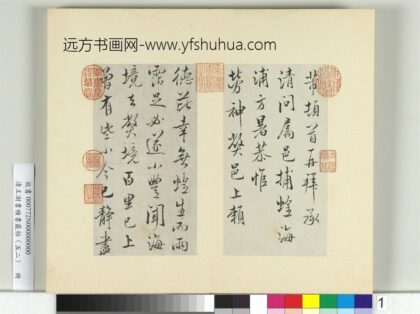 远方书画网-www.yfshuhua.com
芾頓首再拜承
清問屬邑捕蝗海
浦方暑恭惟
勞神弊邑上賴
德芘幸無蝗生而雨
霑足必遂小豐聞海
境去弊境百里已上
曾有些小今已靜盡
1